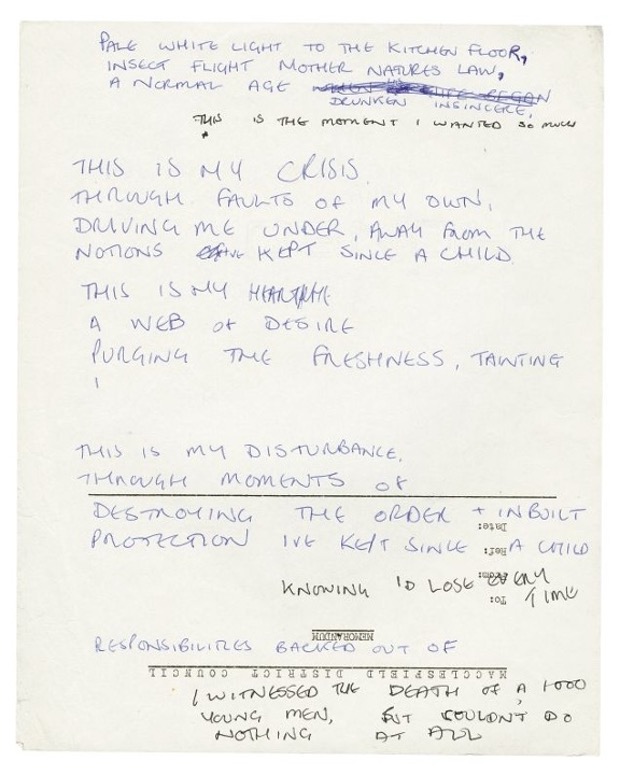 PALE WHITE LIGHT TO THE KITCHEN FLOOR,
INSECT FLIGHT MOTHER NATURES LAW,
A NORMAL AGE LIFE BEGAN
DRUNKEN INSINCERE,
THIS IS THE MOMENT I WANTED SO MUCH
THIS IS MY CRISIS.
THROUGH FAULTS OF MY OWN,
DRIVING ME UNDER, AWAY FROM THE
NOTIONS KEPT SINCE A CHILD.
THIS IS MY
A WEB OF DESIRE
PURGING THE FRESHNESS, TAINTING
I
THIS IS MY DISTURBANCE,
THROUGH MOMENTS OF
DESTROYING THE ORDER + INBUILT
Date:
PROTECTION IVE KEPT SINCE A CHILD
Ref:
From:
KNOWING I'D LOSE EVERY
To:
TIME
MEMORANDUM
RESPONSIBILITIES BACKED OUT OF
MACCLESFIELD DISTRICT COUNCIL
I WITNESSED THE DEATH OF A 1000
YOUNG MEN, BUT COULDN'T DO
NOTHING AT ALL